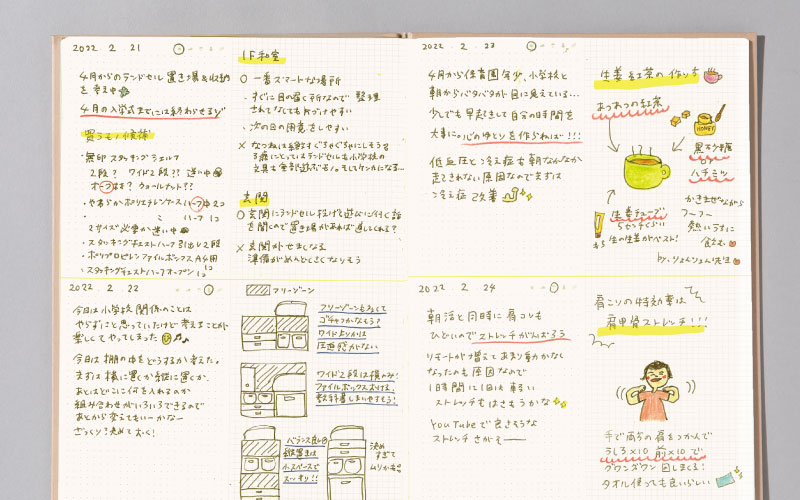 2022.2.21
4月からのランドセル置き場&収納
を考え中
4月の入学式までには終わらせる!!
買うもの候補
・無印 スタッキングシェルフ
2段? ワイド2段?? 迷い中
オークはす? ウォールナット??
・やわらかポリエチレンケース ハーフ中 2コ
ハーフ小 1コ
2サイズ必要か迷い中
・スタッキングチェストハーフ引出し2段
・ポリプロピレンファイルボックス A4用
・スタッキングチェストハーフオープン 1コ
1F和室
○ 一番スマートな場所
・すぐに目の届く所なので 整理
されてなくても片づけやすい
・次の日の用意をしやすい
玄関
○ 玄関にランドセル投げて遊びに行く話
を聞くので置き場があれば通しくれる?
× 玄関がせまくなる
準備がめんどくさくなりそう
2022.2.22
今日は小学校関係のことは
やらずにと思っていたけど考えることが
楽しくてやってしまった
今日は棚の中をどうするか考えた。
まずは横に置くか縦に置くか
あとはどこに何を入れるのか
組み合わせがいろいろできるので
あとから変えてもいーかなー
ざっくり決めておく!
フリーゾーン
フリーゾーンもあって
ゴチャつかなそう?
ワイドよりかは
圧迫感がない
ワイド2段は横のみ!
ファイルボックスおける。
教科書しまいやすそう!
バランス良し◎
縦置きは
小スペースで
スッキリ!!
決め
すぎて
ムリかも
2022.2.23
4月から保育園年少、小学校と
朝からバタバタが目に見えている…
少しでも早起きして自分の時間を
大事に。心のゆとりを作らねば!!!
低血圧と冷え症も朝なかなか
起きれない原因なのでまずは
冷え症改善
生姜紅茶の作り方
あつあつの紅茶
HONEY
黒砂糖
or
ハチミツ
生姜チューブ
5センチくらい
生の生姜がベスト!
かきまぜながら
フーフー
熱いうちに
飲む
2022.2.24
朝活と同時に肩コリも
ひどいのでストレッチがんばろう
リモートが増えてあまり動かなく
なったのも原因なので
1日時間に1回も軽い
ストレッチもはさもうかな
YouTubeで良さそうな
ストレッチさがそー
肩こりの特効薬は
肩甲骨ストレッチ!!!
手で両方の肩をつかんで
うしろ×10 前×10で
グワングワン回しまくる!
タオル使っても良いらしい